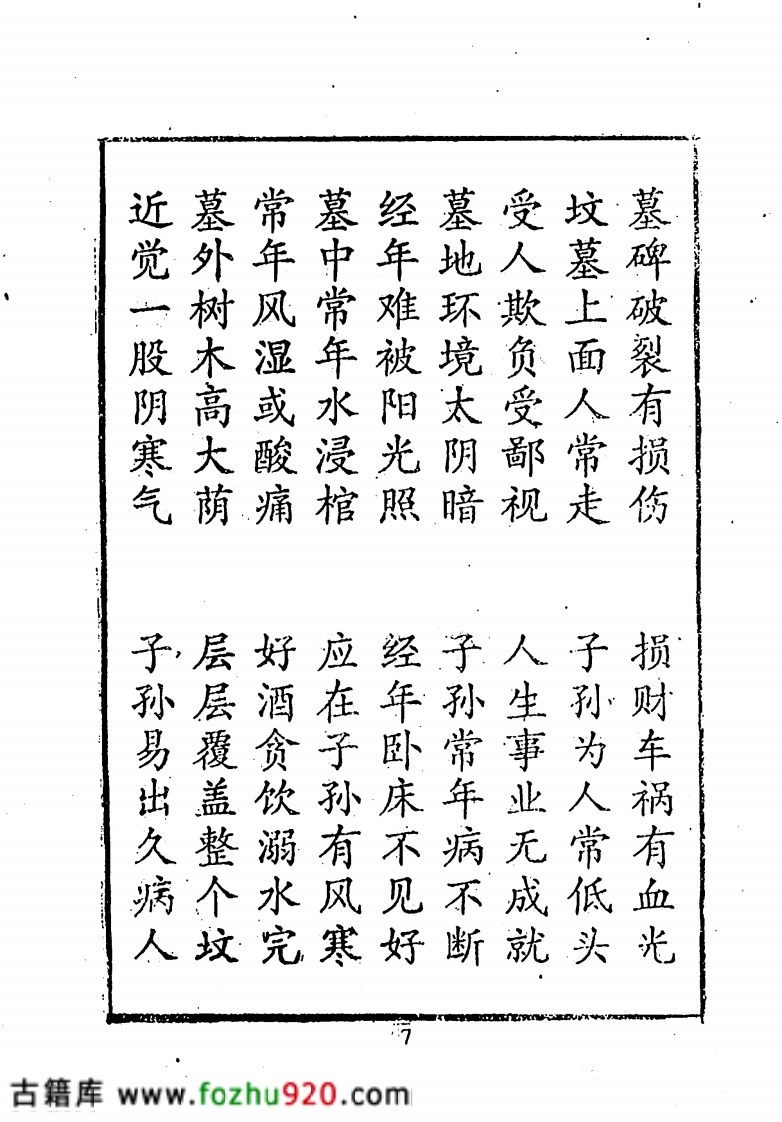 墓碑破裂有损伤 损财车祸有血光
坟墓上面人常走 子孙为人常低头
受人欺负受鄙视 人生事业无成就
墓地环境太阴暗 子孙常年病不断
经年难被阳光照 经年卧床不见好
墓中常年水浸棺 应在子孙有风寒
常年风湿或酸痛 好酒贪饮溺水完
墓外树木高大荫 层层覆盖整个坟
近觉一股阴寒气 子孙易出久病人
7
古籍库 www.fozhu920.com